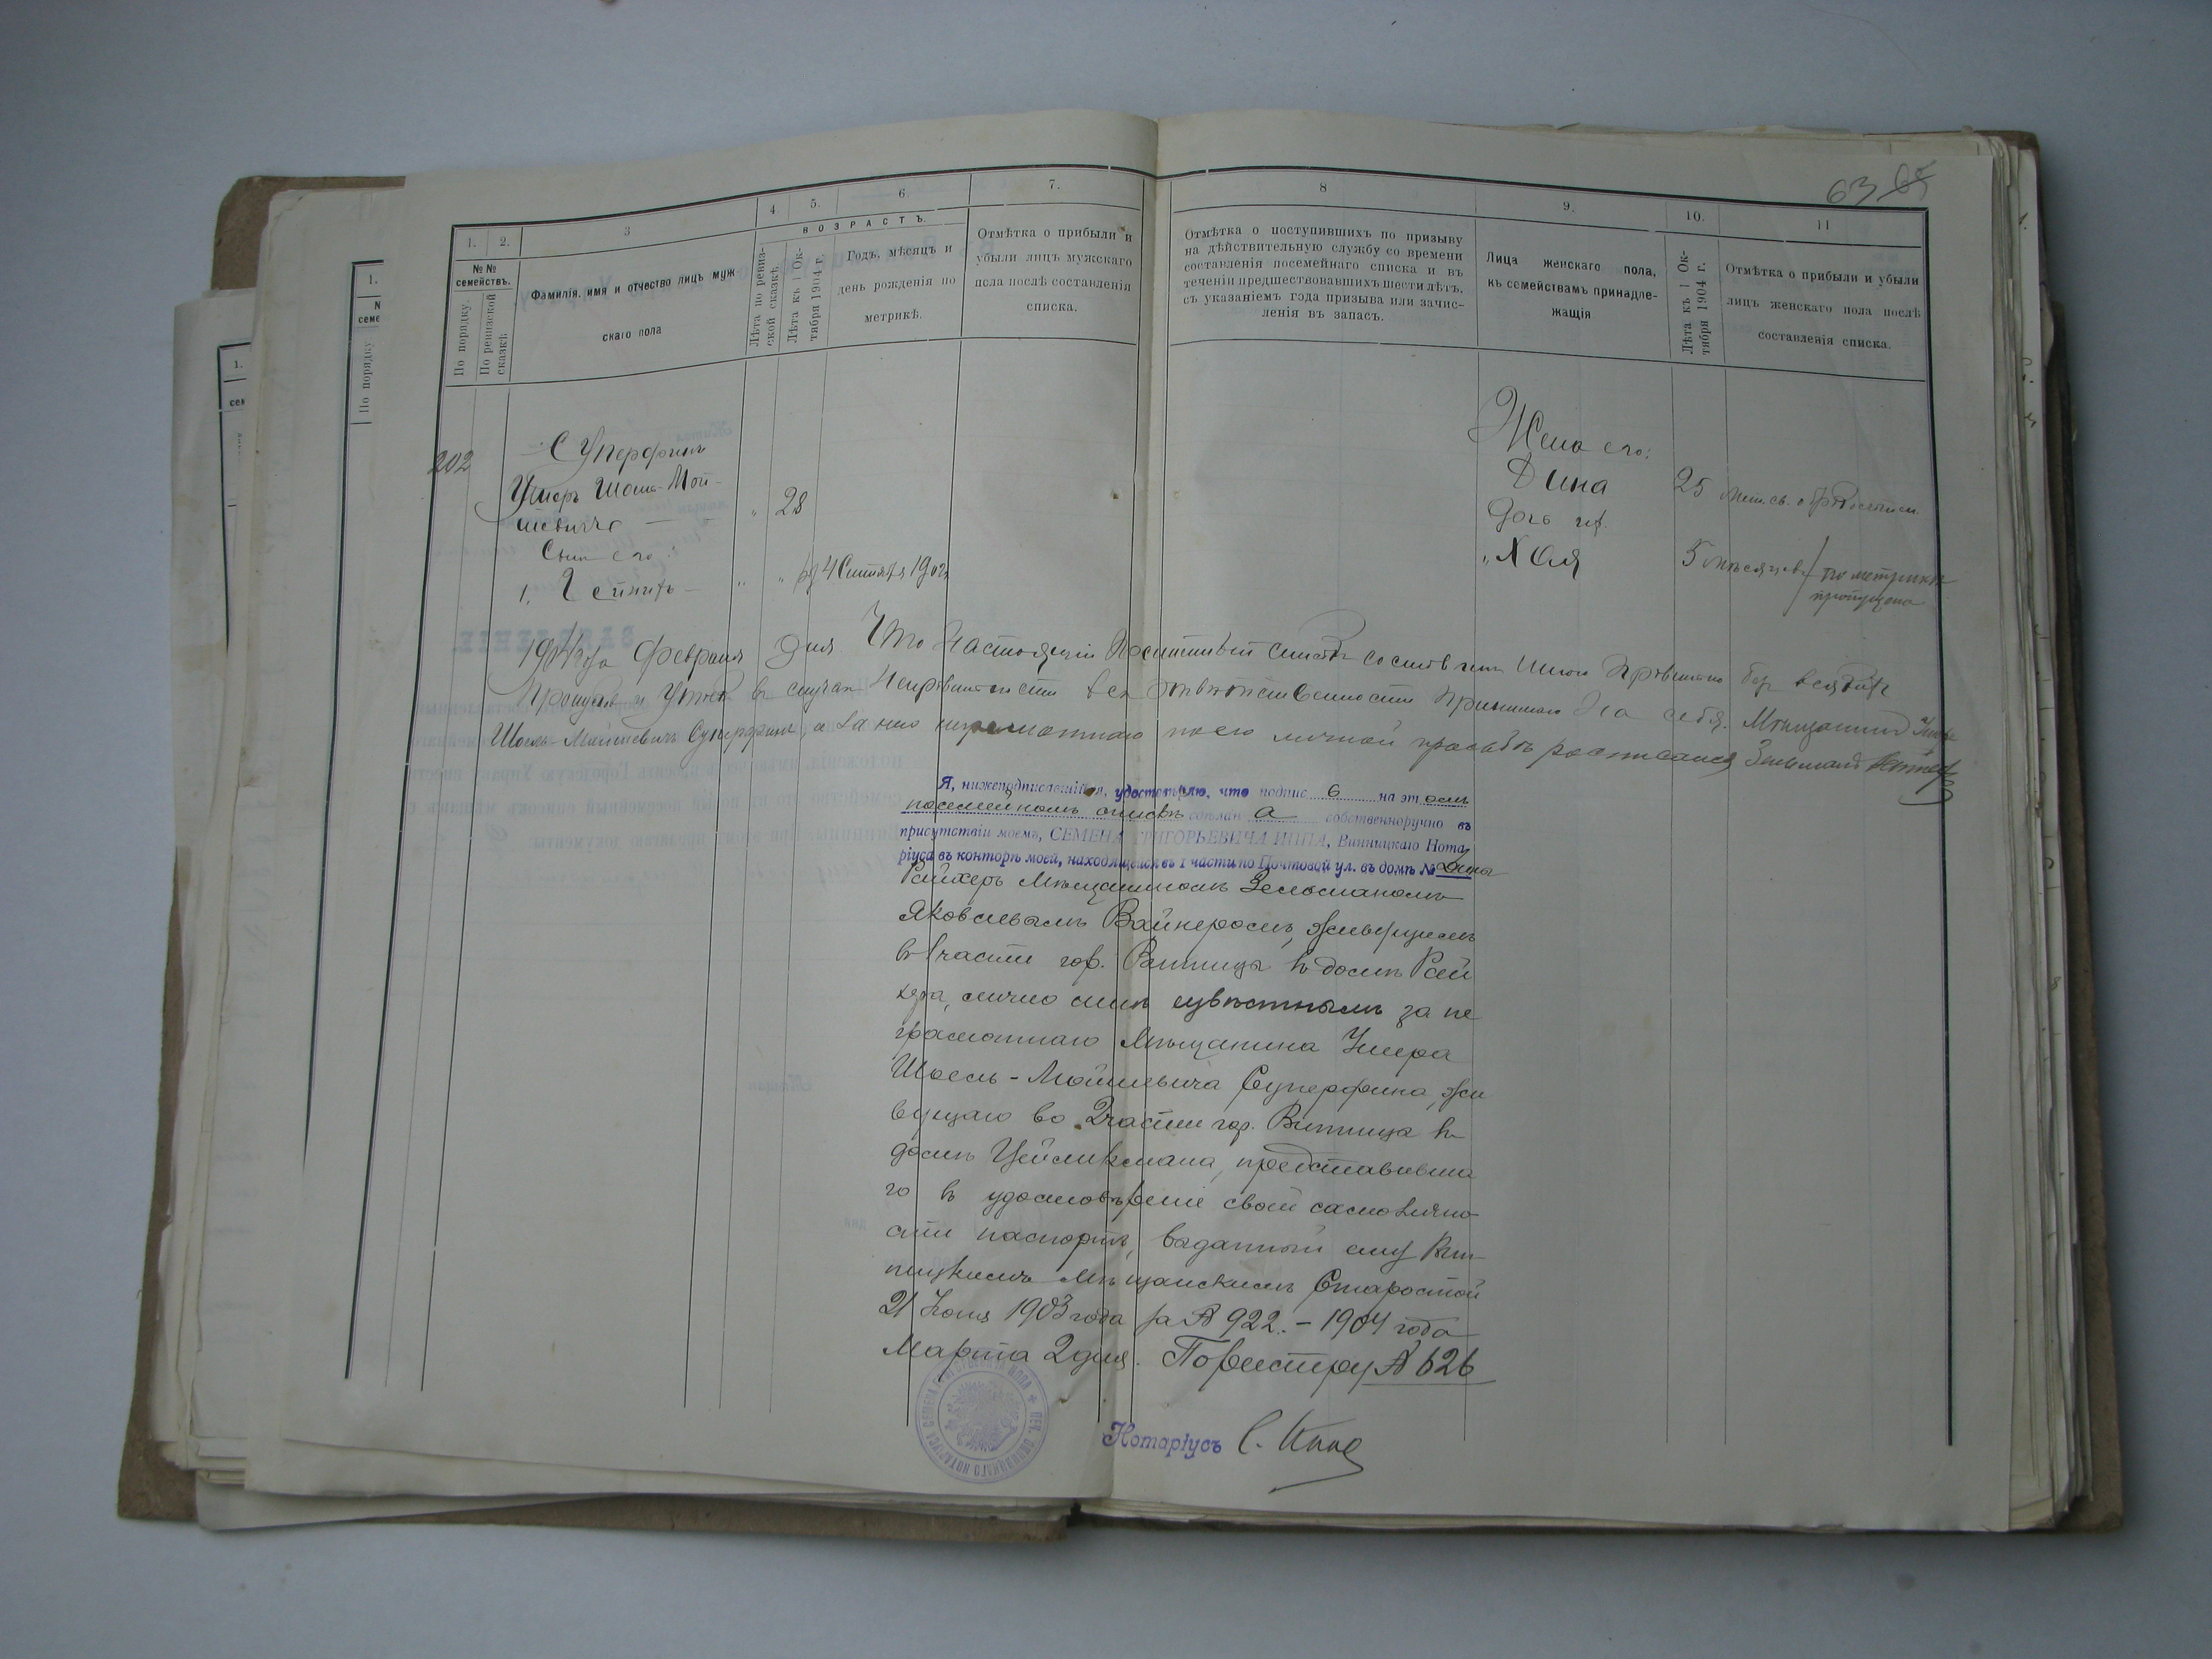 63 65
1. 2. 3 4. 5. 6. 7. 8 9. 10. 11
ВОЗРАСТЪ.
№№ семействъ.
По порядку.
По ревизской сказкѣ.
Фамилія, имя и отчество лицъ муж
скаго пола
Лѣта по ревиз-
ской сказкѣ.
Лѣта къ 1 Ок-
тября 1904 г.
Годъ, мѣсяцъ и
день рожденія по
метрикѣ.
Отмѣтка о прибыли и
убыли лицъ мужскаго
пола послѣ составленія
списка.
Отмѣтка о поступившихъ по призыву
на дѣйствительную службу со времени
составленія посемейнаго списка и въ
теченіи предшествовавшихъ шести лѣтъ,
съ указаніемъ года призыва или зачис-
ленія въ запасъ.
Лица женскаго пола,
къ семействамъ принадле-
жащія
Лѣта къ 1 Ок-
тября 1904 г.
Отмѣтка о прибыли и убыли
лицъ женскаго пола послѣ
составленія списка.
202
Суперфинъ
Умеръ Шоель-Мой-
шевичъ — " 28
Сынъ его:
1. " " 4 Сентября 1902
Жена его:
Дина 25
Дочь их
" Хая 5 мѣсяцев по метрикѣ
пропущена
1904 года Февраля дня Что настоящій посемейный списокъ составленъ мною правильно без всякаго
пропуска и утайки въ случаѣ неправильности вся отвѣтственности принимаю на себя. Мѣщанинъ Умеръ
Шоель-Мойшевичъ Суперфинъ, а за него неграмотнаго по его личной просьбѣ росписался Зельманъ Вайнеръ
Я, нижеподписавшійся, удостовѣряю, что подпись 6 на этомъ
посемейномъ спискѣ сдѣлана собственноручно въ
присутствіи моемъ, СЕМЕНА ГРИГОРЬЕВИЧА ИППА, Винницкаго Нота
ріуса въ конторѣ моей, находящейся въ 1 части по Почтовой ул. въ домѣ №
Райхеръ Мѣщаниномъ Зельманомъ
Яковлевымъ Вайнеромъ, живущимъ
въ 1 части гор. Винницы въ домѣ Рай
хера, лично мнѣ извѣстнымъ за не
грамотнаго Мѣщанина Умера
Шоель-Мойшевича Суперфина, жи
вущаго во 2 части гор. Винница въ
домѣ Цейликмана, представивша
го въ удостовѣреніе своей самолично
сти паспортъ, выданный ему Вин-
ницкимъ Мѣщанскимъ Старостой
21 Іюня 1903 года за № 922. – 1904 года
Марта 2 дня. По реестру № 626
Нотаріусъ С. Иппа